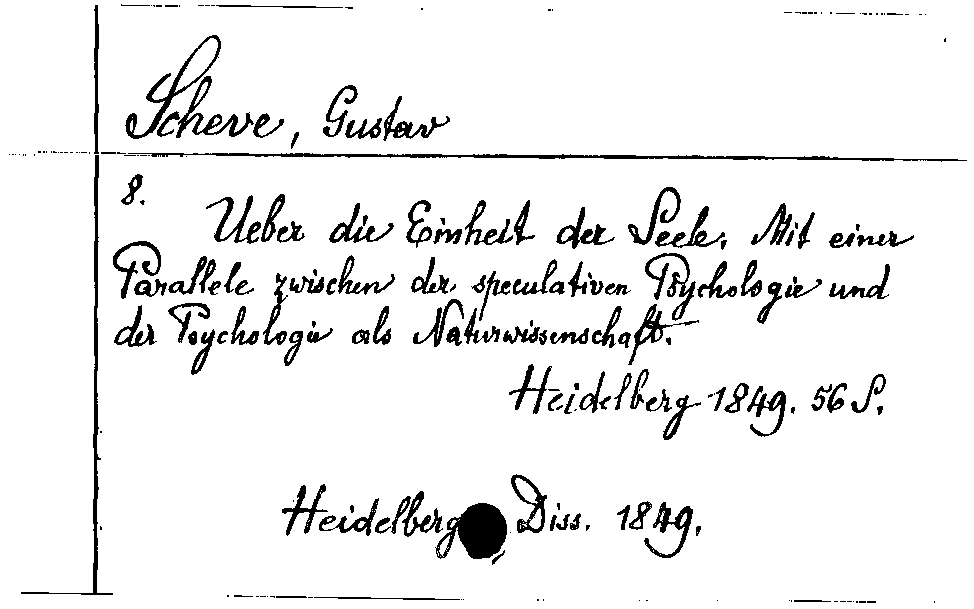 Scheve, Gustav
8.
Ueber die Einheit der Seele. Mit einer
Parallele zwischen der speculativen Psychologie und
der Psychologie als Naturwissenschaft.
Heidelberg 1849. 56 S.
Heidelberg, Diss. 1849.